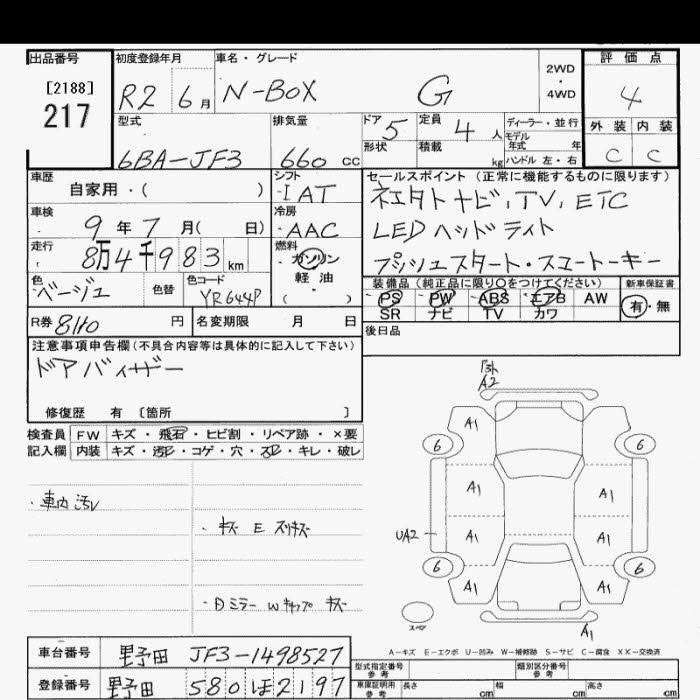 出品番号 初度登録年月 車名・グレード 2WD・4WD 評価点
[2188]
217
R2 6月 N-BOX G 4
型式 排気量 ドア 5 定員 4人 ディーラー・並行 外装 内装
モデル年式 年
6BA-JF3 660cc 形状 積載 kg ハンドル 左・右 C C
車歴 シフト セールスポイント(正常に機能するものに限ります)
自家用・( ) IAT ナビ,TV,ETC
車検 冷房 LEDヘッドライト
9年7月( 日) AAC プッシュスタート・
走行 燃料
8万4千983km ガソリン
軽油
( )
色 色替 色コード 装備品(純正品に限り○をつけてください) 新車保証書
ベージュ YR644P PS PW ABS エアB AW 有・無
SR ナビ TV カワ
R券 8110円 名変期限 月 日 後日品
注意事項申告欄(不具合内容等は具体的に記入して下さい)
ドアバイザー
修復歴 有〔箇所 〕
検査員 FW キズ・飛石・ヒビ割・リペア跡・×要
記入欄 内装 キズ・汚レ・コゲ・穴・スレ・キレ・破レ
・車内汚レ
・キズ E スリキズ
・ミラーWキャップ キズ
A2
A1
6 6
A1 A1
UA2 A1 A1
6 6
A1 A1
スペア A1
A-キズ E-エクボ U-凹み W-補修跡 S-サビ C-腐食 XX-交換済
車台番号 野田 JF3-1498527 型式指定番号 参考 類別区分番号 参考
登録番号 野田 580 ほ 2197 車庫証明用 参考 長さ cm 幅 cm 高さ cm